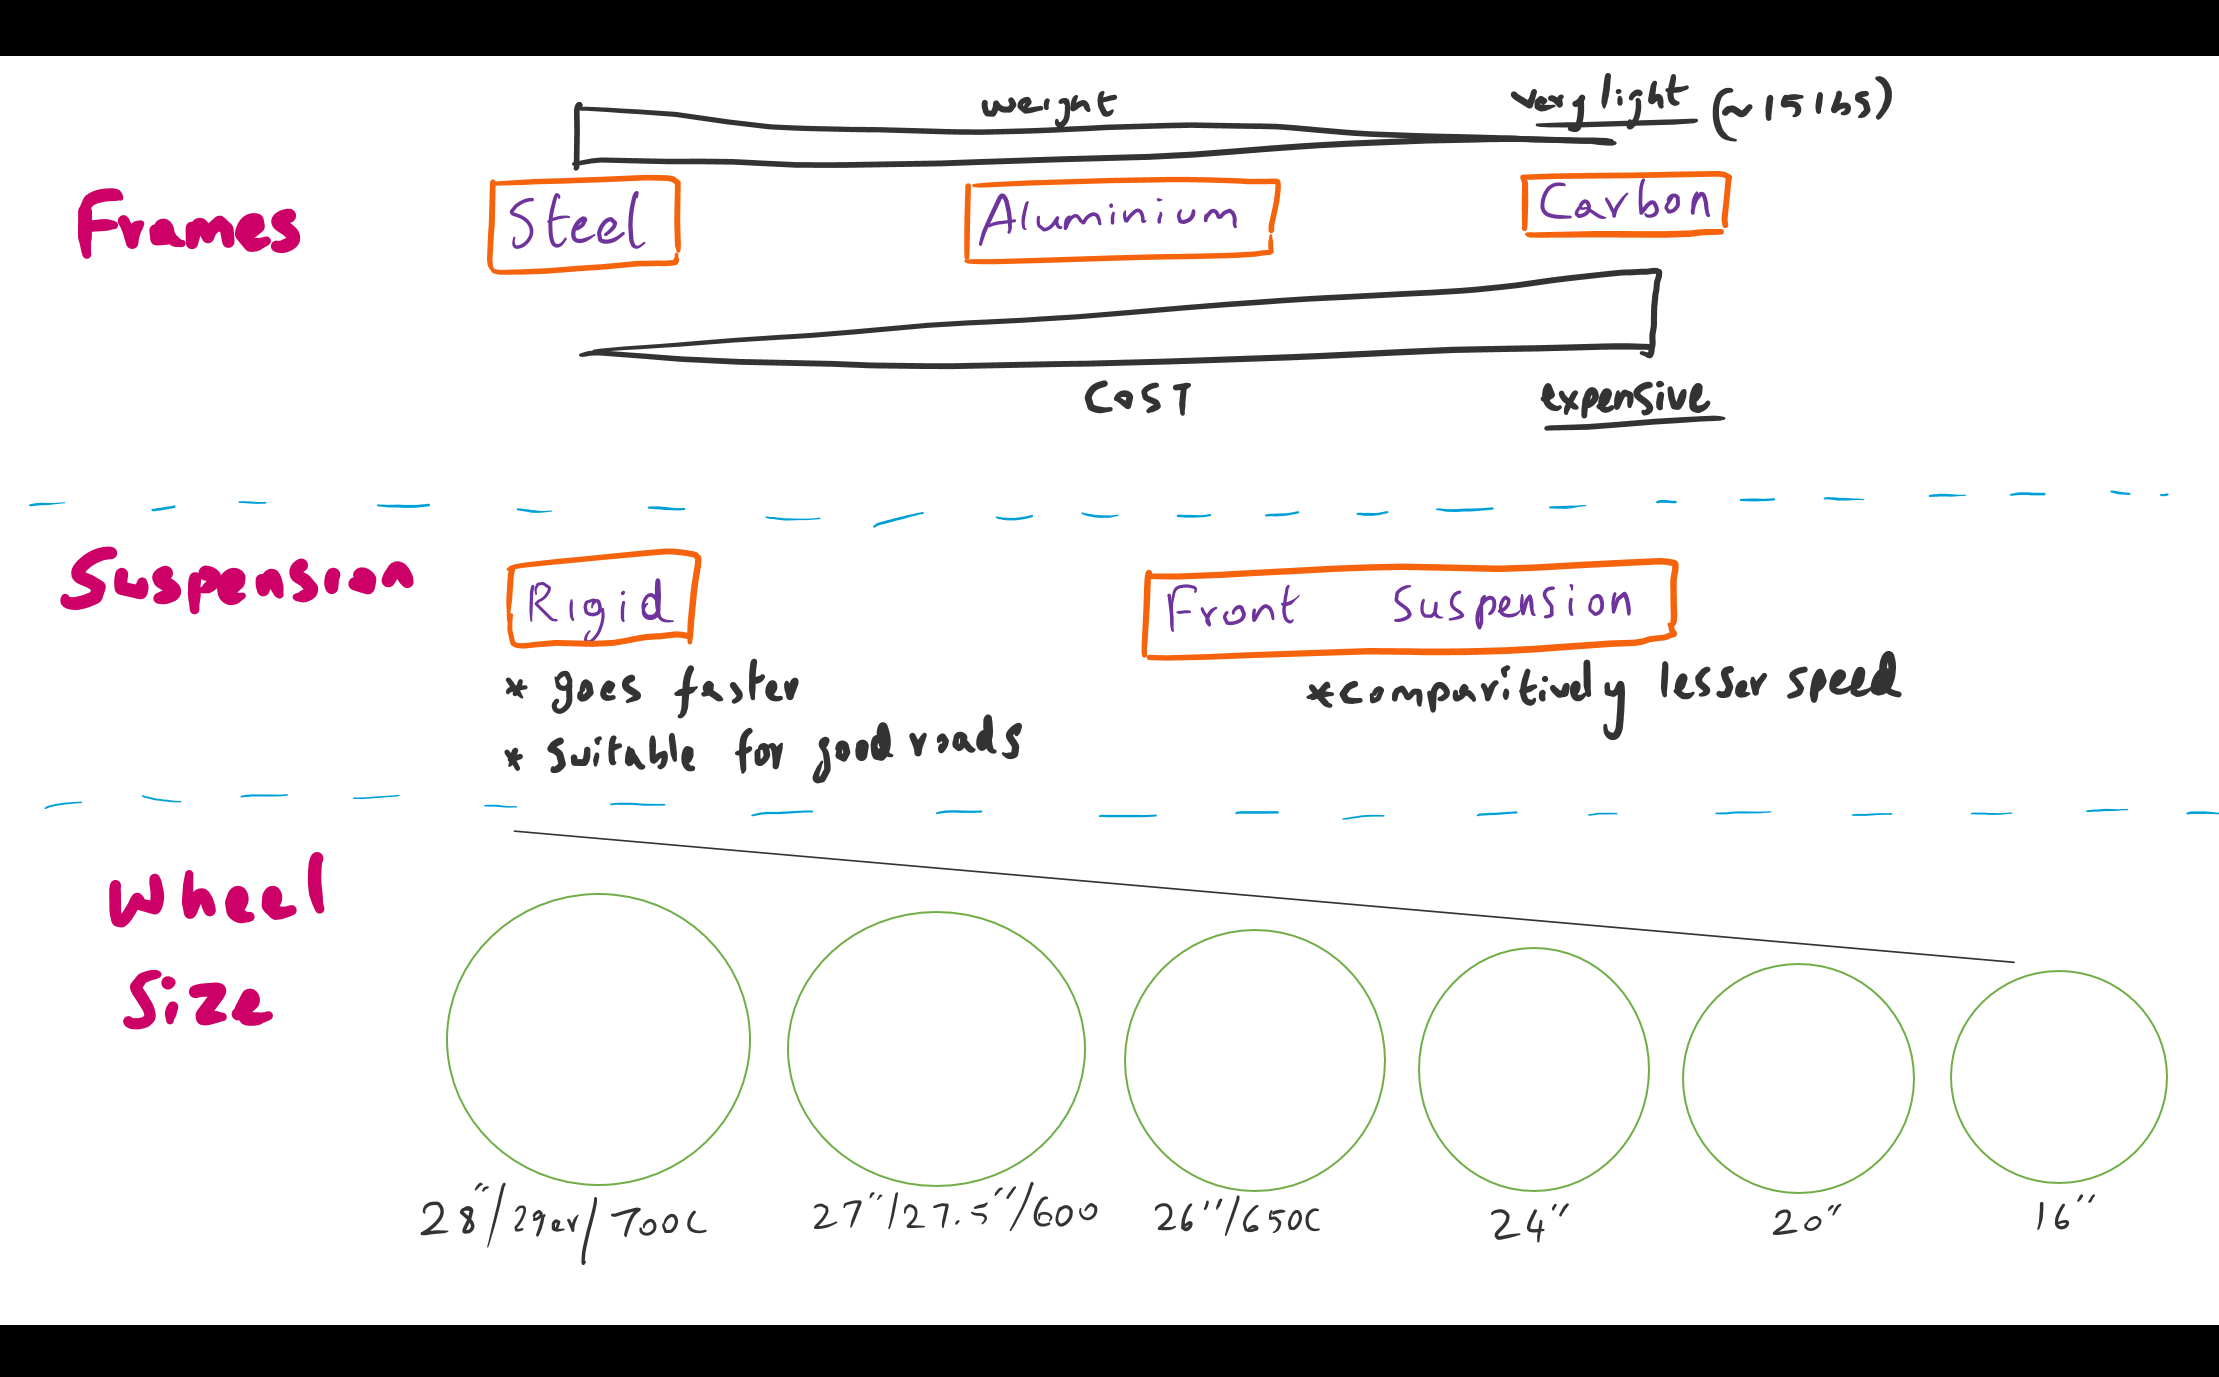 weight
very light (~15 lbs)
Frames
Steel
Aluminium
Carbon
COST
expensive
Suspension
Rigid
Front Suspension
* goes faster
* suitable for good roads
*comparitively lesser speed
Wheel
Size
28"/29er/700C
27"/27.5"/600
26"/650C
24"
20"
16"